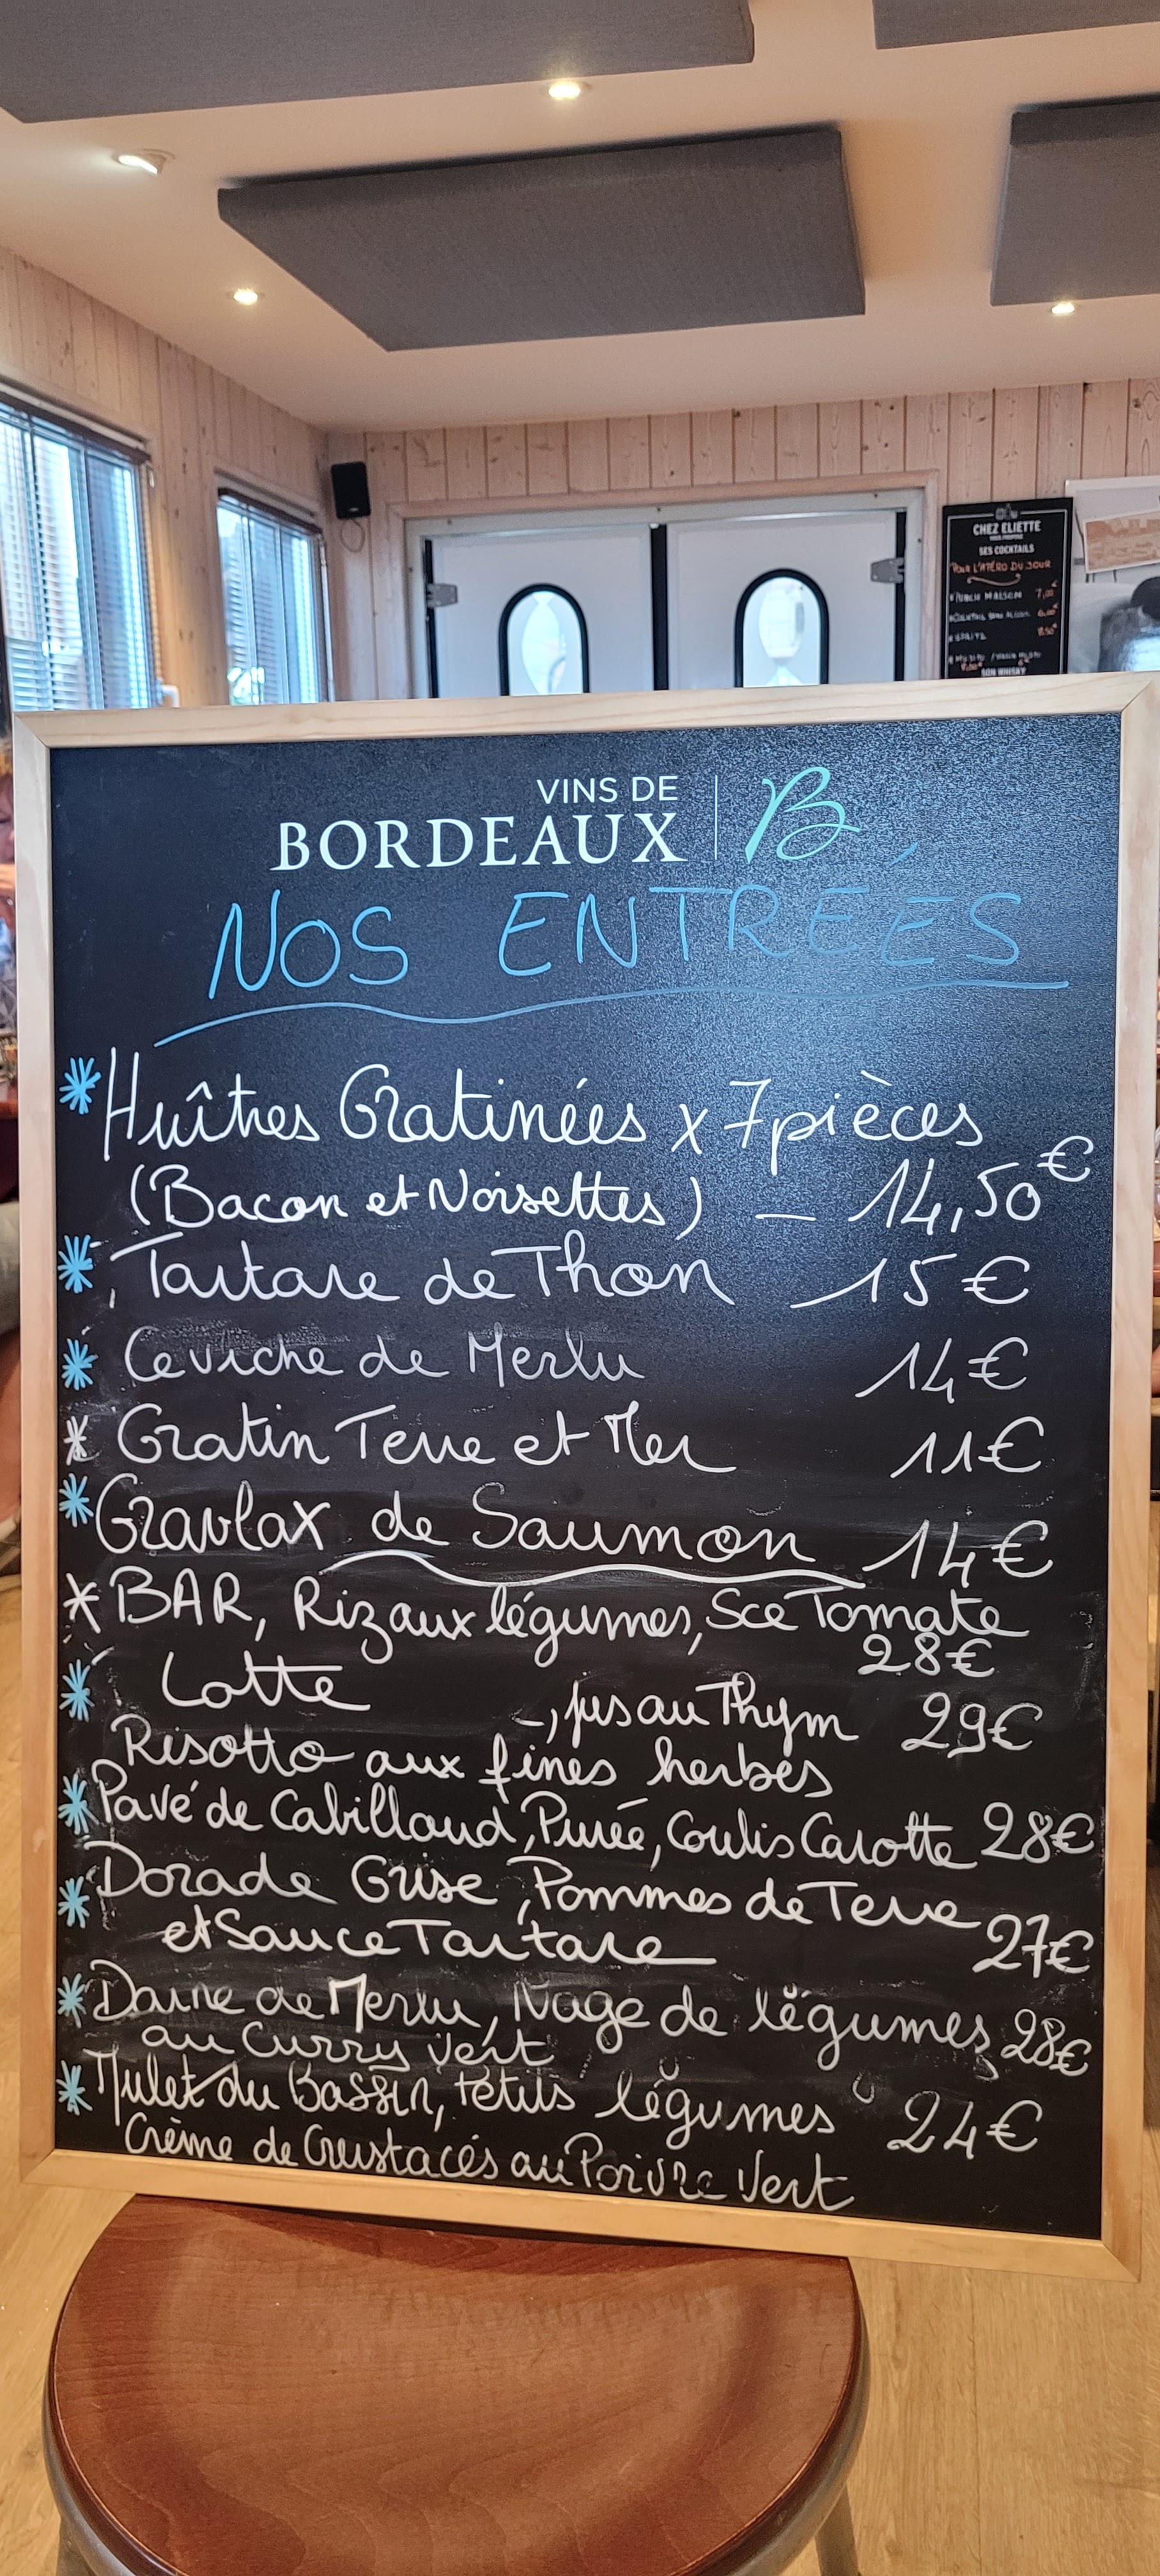 CHEZ ELIETTE
VOUS PROPOSE
SES COCKTAILS
POUR L'APÉRO DU JOUR
PUNCH MAISON 7,00€
SON WHISKY
VINS DE
BORDEAUX B
NOS ENTRÉES
* Huîtres Gratinées x 7 pièces
(Bacon et Noisettes) — 14,50€
* Tartare de Thon — 15€
* Ceviche de Merlu 14€
* Gratin Terre et Mer 11€
* Gravlax de Saumon 14€
* BAR, Riz aux légumes, Sce Tomate
28€
* Lotte -, jus au Thym 29€
Risotto aux fines herbes
* Pavé de Cabillaud, Purée, Coulis Carotte 28€
* Dorade Grise, Pommes de Terre
et Sauce Tartare 27€
* Darne de Merlu, Nage de légumes 28€
au Curry vert
* Mulet du Bassin, Petits légumes 24€
Crème de Crustacés au Poivre Vert